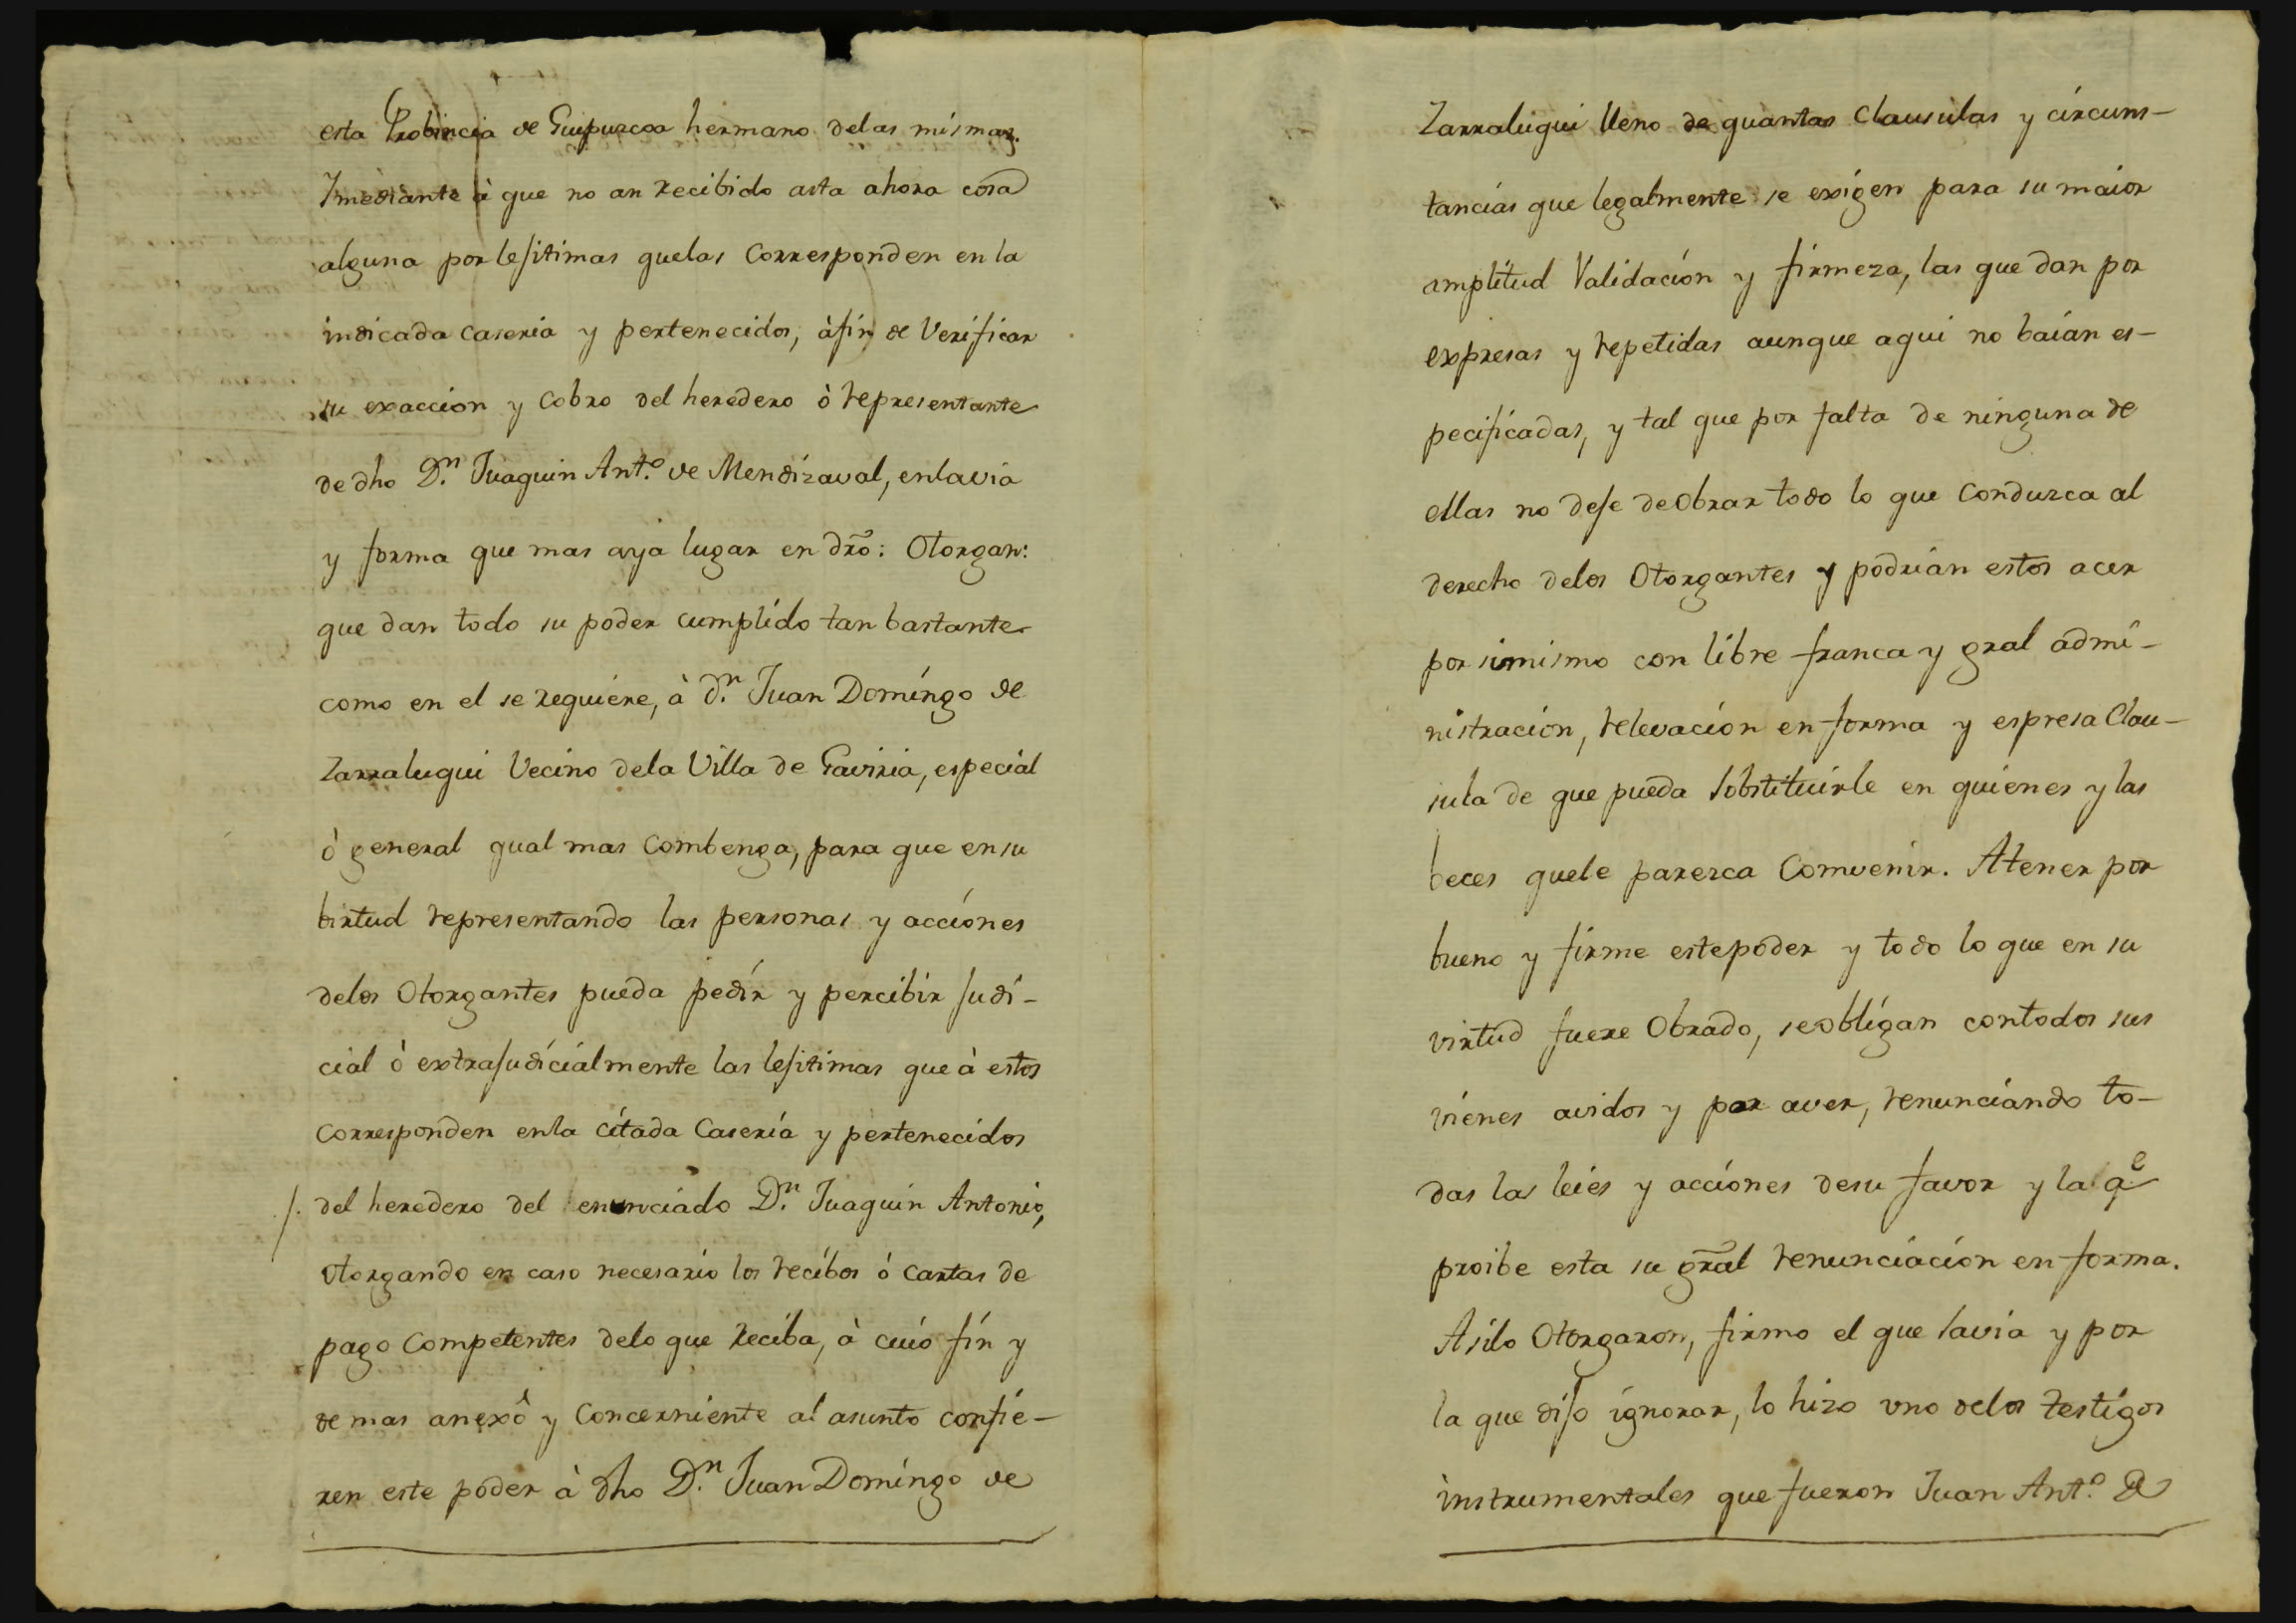 esta Probincia de Guipuzcoa hermano delas mismas.
Ymediante à que no an recibido asta ahora cosa
alguna por lesitimas quelas Corresponden en la
indicada caseria y pertenecidos, àfin de Verificar
su exaccion y Cobro del heredero ò representante
de dho Dn. Juaquin Anto. de Mendizaval, enlavia
y forma que mas aya lugar en dro: Otorgan:
que dan todo su poder cumplido tan bastante
como en el se requiere, à dn. Juan Domingo de
Zarralugui Vecino dela Villa de Gaviria, especial
ò general qual mas Combenga, para que ensu
birtud representando las personas y acciones
delos Otorgantes pueda pedir y percibir judi-
cial ò extrajudicialmente las lesitimas que à estos
corresponden enla citada Caseria y pertenecidos
/. del heredero del enunciado Dn. Juaquin Antonio,
otorgando en caso necesario los recibos ó cartas de
pago Competentes delo que Reciba, à cuio fin y
de mas anexô y Concerniente al asunto confie-
ren este poder à dho Dn. Juan Domingo de
Zarralugui lleno de quantas Clausulas y circuns-
tancias que legalmente se exigen para su maior
amplitud Validacion y firmeza, las que dan por
expresas y repetidas aunque aqui no baian es-
pecificadas, y tal que por falta de ninguna de
ellas no deje deobrar todo lo que Conduzca al
derecho delos Otorgantes y podrian estos acer
por simismo con libre franca y gral admi-
nistracion, relevacion en forma y espresa Clau-
sula de que pueda Sobstituirle en quienes y las
beces quele parezca Comvenir. Atener por
bueno y firme estepoder y todo lo que en su
virtud fuere Obrado, seobligan contodos sus
vienes avidos y por aver, renunciando to-
das las leies y acciones desu favor y la qe
proibe esta su gral renunciacion en forma.
Asilo Otorgaron, firmo el que savia y por
la que dijo ignorar, lo hizo uno delos testigos
instrumentales que fueron Juan Anto. de